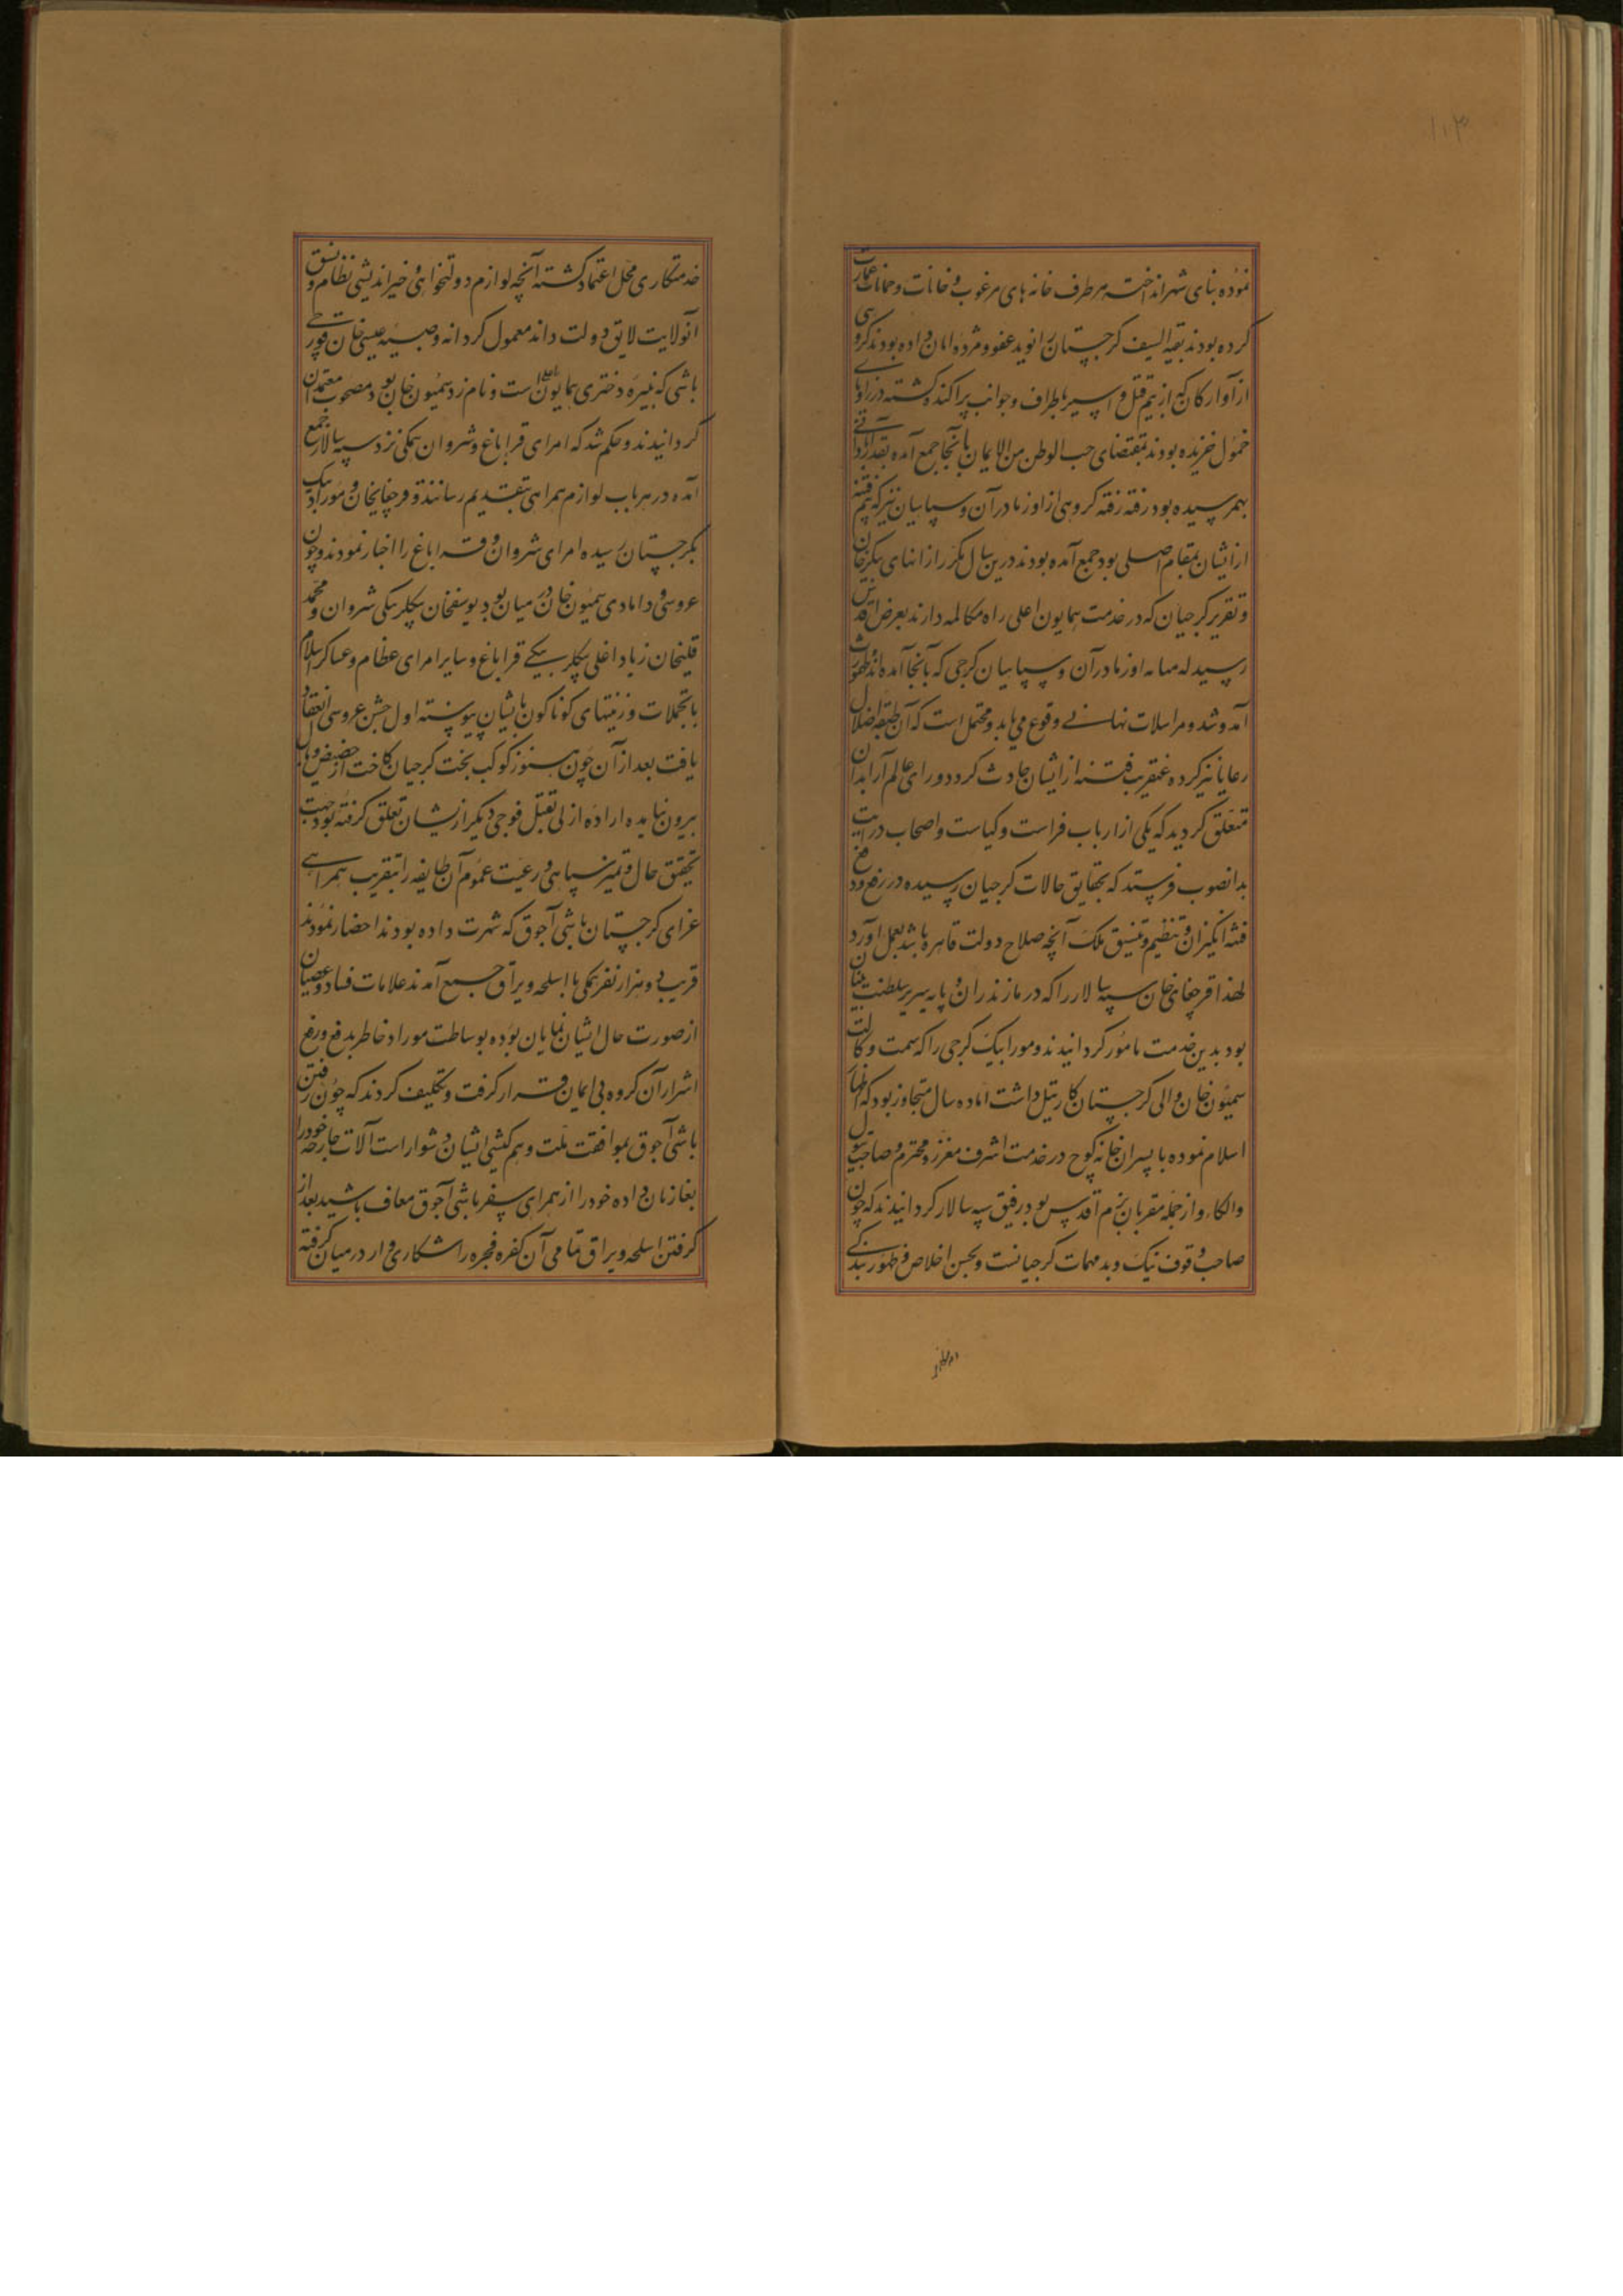 ۱۰۳
نموده بنای شهر انداخته هر طرف خانه های مرغوب و خانات و حمامات عمارت
کرده بودند بقیه السیف گرجستان را نوید عفو و مژده امان داده بودند گروهی
از آوارگان که از بیم قتل و اسیر باطراف و جوانب پراکنده گشته در زوایای
خمول خزیده بودند بمقتضای حب الوطن من الایمان بآنجا جمع آمده بقدر
بهم رسیده بود رفته رفته گروهی از اوزنادران و سپاهیان نیز که بیم فتنه
از ایشان بمقام اصلی بود جمع آمده بودند درین سال مکرر از انهای پیکر خان
و تقریر گرجیان که در خدمت همایون اعلی راه مکالمه دارند بعرض اقدس
رسید که میانه اوزنادران و سپاهیان گرجی که بآنجا آمده اند
آمد و شد و مراسلات نهانی وقوع می یابد و محتمل است که آن طبقه اضلال
رعایا نیز کرده عنقریب فتنه از ایشان حادث گردد و رای عالم آرا بدان
متعلق گردید که یکی از ارباب فراست و کیاست و اصحاب درایت
بدانصوب فرستند که بحقایق حالات گرجیان رسیده در رفع و دفع
فتنه انگیزان و تنظیم و تنسیق ملک آنچه صلاح دولت قاهره باشد بعمل آورد
لهذا قرچغای خان سپه سالار را که در مازندران و پایه سریر سلطنت بنیان
بود بدین خدمت مامور گردانیدند و موراد بیک گرجی را که سمت وکالت
سمیون خان والی گرجستان کارتیل داشت اما ده سال متجاوز بود که اظهار
اسلام نموده با پسران خانه کوچ در خدمت اشرف معزز و محترم و صاحب تیول
والکاء و از جمله مقربان بزم اقدس بود رفیق سپه سالار گردانیدند که چون
صاحب وقوف نیک و بد مهمات گرجیانست و بحسن اخلاص و ظهور بندگی
خدمتکاری محل اعتماد گشته آنچه لوازم دولتخواهی و خیر اندیشی نظام و نسق
آنولایت لایق دولت داند معمول گرداند و صبیه عیسی خان قورچی
باشی که نبیره دختری همایون است و نامزد سمیون خان بود مصحوب معتمدان
گردانیدند و حکم شد که امرای قراباغ و شروان همگی نزد سپه سالار جمع
آمده در هر باب لوازم همراهی بتقدیم رسانند و قرچغایخان و موراد بیک
بگرجستان رسیده امرای شروان و قراباغ را اخبار نمودند و چون
عروسی و دامادی سمیون خان در میان بود یوسفخان بیگلربیگی شروان و محمد
قلیخان زیاد اغلی بیگلربیگی قراباغ و سایر امرای عظام و عساکر اسلام
با تجملات و زینتهای گوناگون بایشان پیوسته اول جشن عروسی انعقاد
یافت بعد از آن چون هنوز کوکب بخت گرجیان کاخت از حضیض وبال
بیرون نیامده اراده ازلی بقتل فوجی دیگر ازیشان تعلق گرفته بود جهت
تحقیق حال و تمیز سپاهی و رعیت عموم آن طایفه را بتقریب همراهی
غزای گرجستان باشی آجوق که شهرت داده بودند احضار نمودند
قریب دو هزار نفر همگی با اسلحه و یراق جمع آمدند علامات فساد و عصیان
از صورت حال ایشان نمایان بوده بوساطت موراد خاطر بدفع و رفع
اشرار آن گروه بی ایمان قرار گرفت و تکلیف کردند که چون رفتن
باشی آجوق بموافقت ملت و هم کیشی ایشان دشوار است آلات جارحه خود را
بغازیان داده خود را از همراهی سفر باشی آجوق معاف باشید بعد از
گرفتن اسلحه و یراق تمامی آن کفره فجره را شکاری وار در میان گرفته